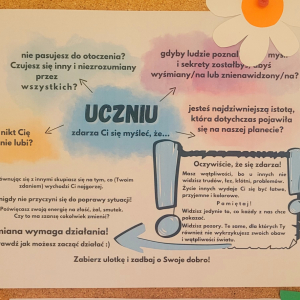 nie pasujesz do otoczenia?
Czujesz się inny i niezrozumiany
przez
wszystkich?
gdyby ludzie poznal myśl
i sekrety zostałbyś
wyśmiany/na lub znienawidzony/na?
UCZNIU
zdarza Ci się myśleć, że...
jesteś najdziwniejszą istotą,
która dotychczas pojawiła
się na naszej planecie?
nikt Cię
nie lubi?
Oczywiście, że się zdarza!
Masz wątpliwości, bo u innych nie
widzisz trudów, łez, kłótni, problemów.
Życie innych wydaje Ci się być łatwe,
przyjemne i kolorowe.
Pamiętaj!
Widzisz jedynie to, co każdy z nas chce
pokazać.
Widzisz pozory. Te same, dla których Ty
również nie wykrzykujesz swoich obaw
i wątpliwości światu.
równując się z innymi skupiasz się na tym, co (Twoim
zdaniem) wychodzi Ci najgorzej.
nigdy nie przyczyni się do poprawy sytuacji!
Poświęcasz swoją energię na złość, żal, smutek.
Czy to ma szansę cokolwiek zmienić?
miana wymaga działania!
rawdź jak możesz zacząć działać :)
Zabierz ulotkę i zadbaj o Swoje dobro!